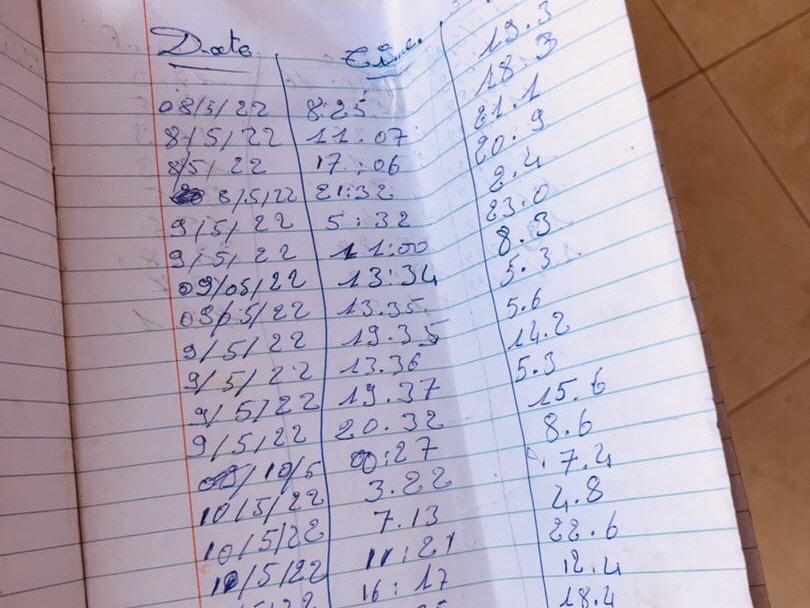 Date Time
08/5/22 8:25 19.3
8/5/22 11.07 18.3
8/5/22 17:06 21.1
8/5/22 21:32 20.9
9/5/22 5:32 2.4
9/5/22 11:00 23.0
09/05/22 13:34 8.3
09/5/22 13.35 5.3
9/5/22 19.35 5.6
9/5/22 13.36 14.2
9/5/22 19.37 5.3
9/5/22 20.32 15.6
10/5 00:27 8.6
10/5/22 3.22 7.4
10/5/22 7.13 4.8
10/5/22 11:21 22.6
16:17 12.4
18.4